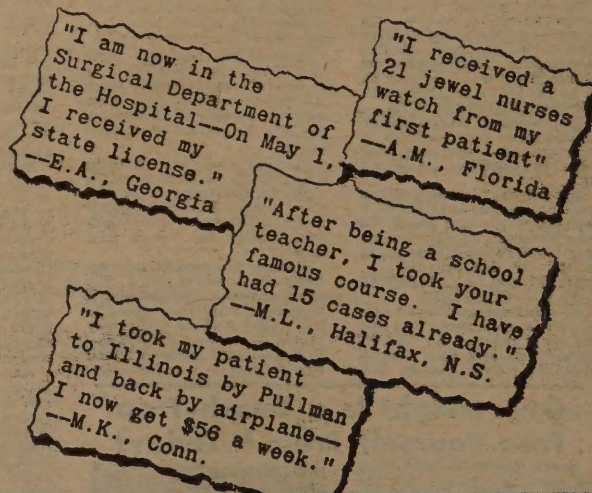 "I am now in the
Surgical Department of
the Hospital--On May 1,
I received my
state license."
--E.A., Georgia
"I received a
21 jewel nurses
watch from my
first patient"
—A.M., Florida
"After being a school
teacher, I took your
famous course. I have
had 15 cases already."
—M.L., Halifax, N.S.
"I took my patient
to Illinois by Pullman
and back by airplane—
I now get $56 a week."
--M.K., Conn.